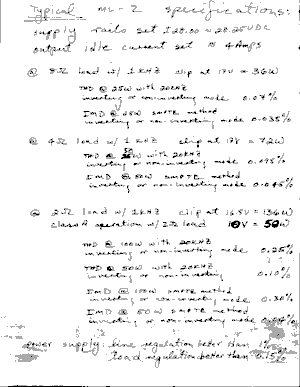 Typical ML-2 specifications:
supply rails set ±28.00 ± 28.25VDC
output idle current set @ 4 Amps
@ 8Ω load w/ 1 KHZ clip at 17V = 36W
THD @ 25W with 20KHZ
inverting or non-inverting mode 0.07%
IMD @ 25W SMPTE method
inverting or non-inverting mode 0.035%
@ 4Ω load w/ 1KHZ clip at 17V = 72W
THD @ 50W with 20KHZ
inverting or non-inverting mode 0.095%
IMD @ 50W SMPTE method
inverting or non-inverting mode 0.045%
@ 2Ω load w/ 1KHZ clip at 16.5V = 136W
class A operation w/ 2Ω load 10V = 50W
THD @ 100W with 20KHZ
inverting or non-inverting mode 0.25%
THD @ 50W with 20KHZ
inverting or non-inverting 0.10%
IMD @ 100W SMPTE method
inverting or non-inverting mode 0.30%
IMD @ 50W SMPTE method
inverting or non-inverting mode
power supply: line regulation better than 1%
load regulation better than 0.15%